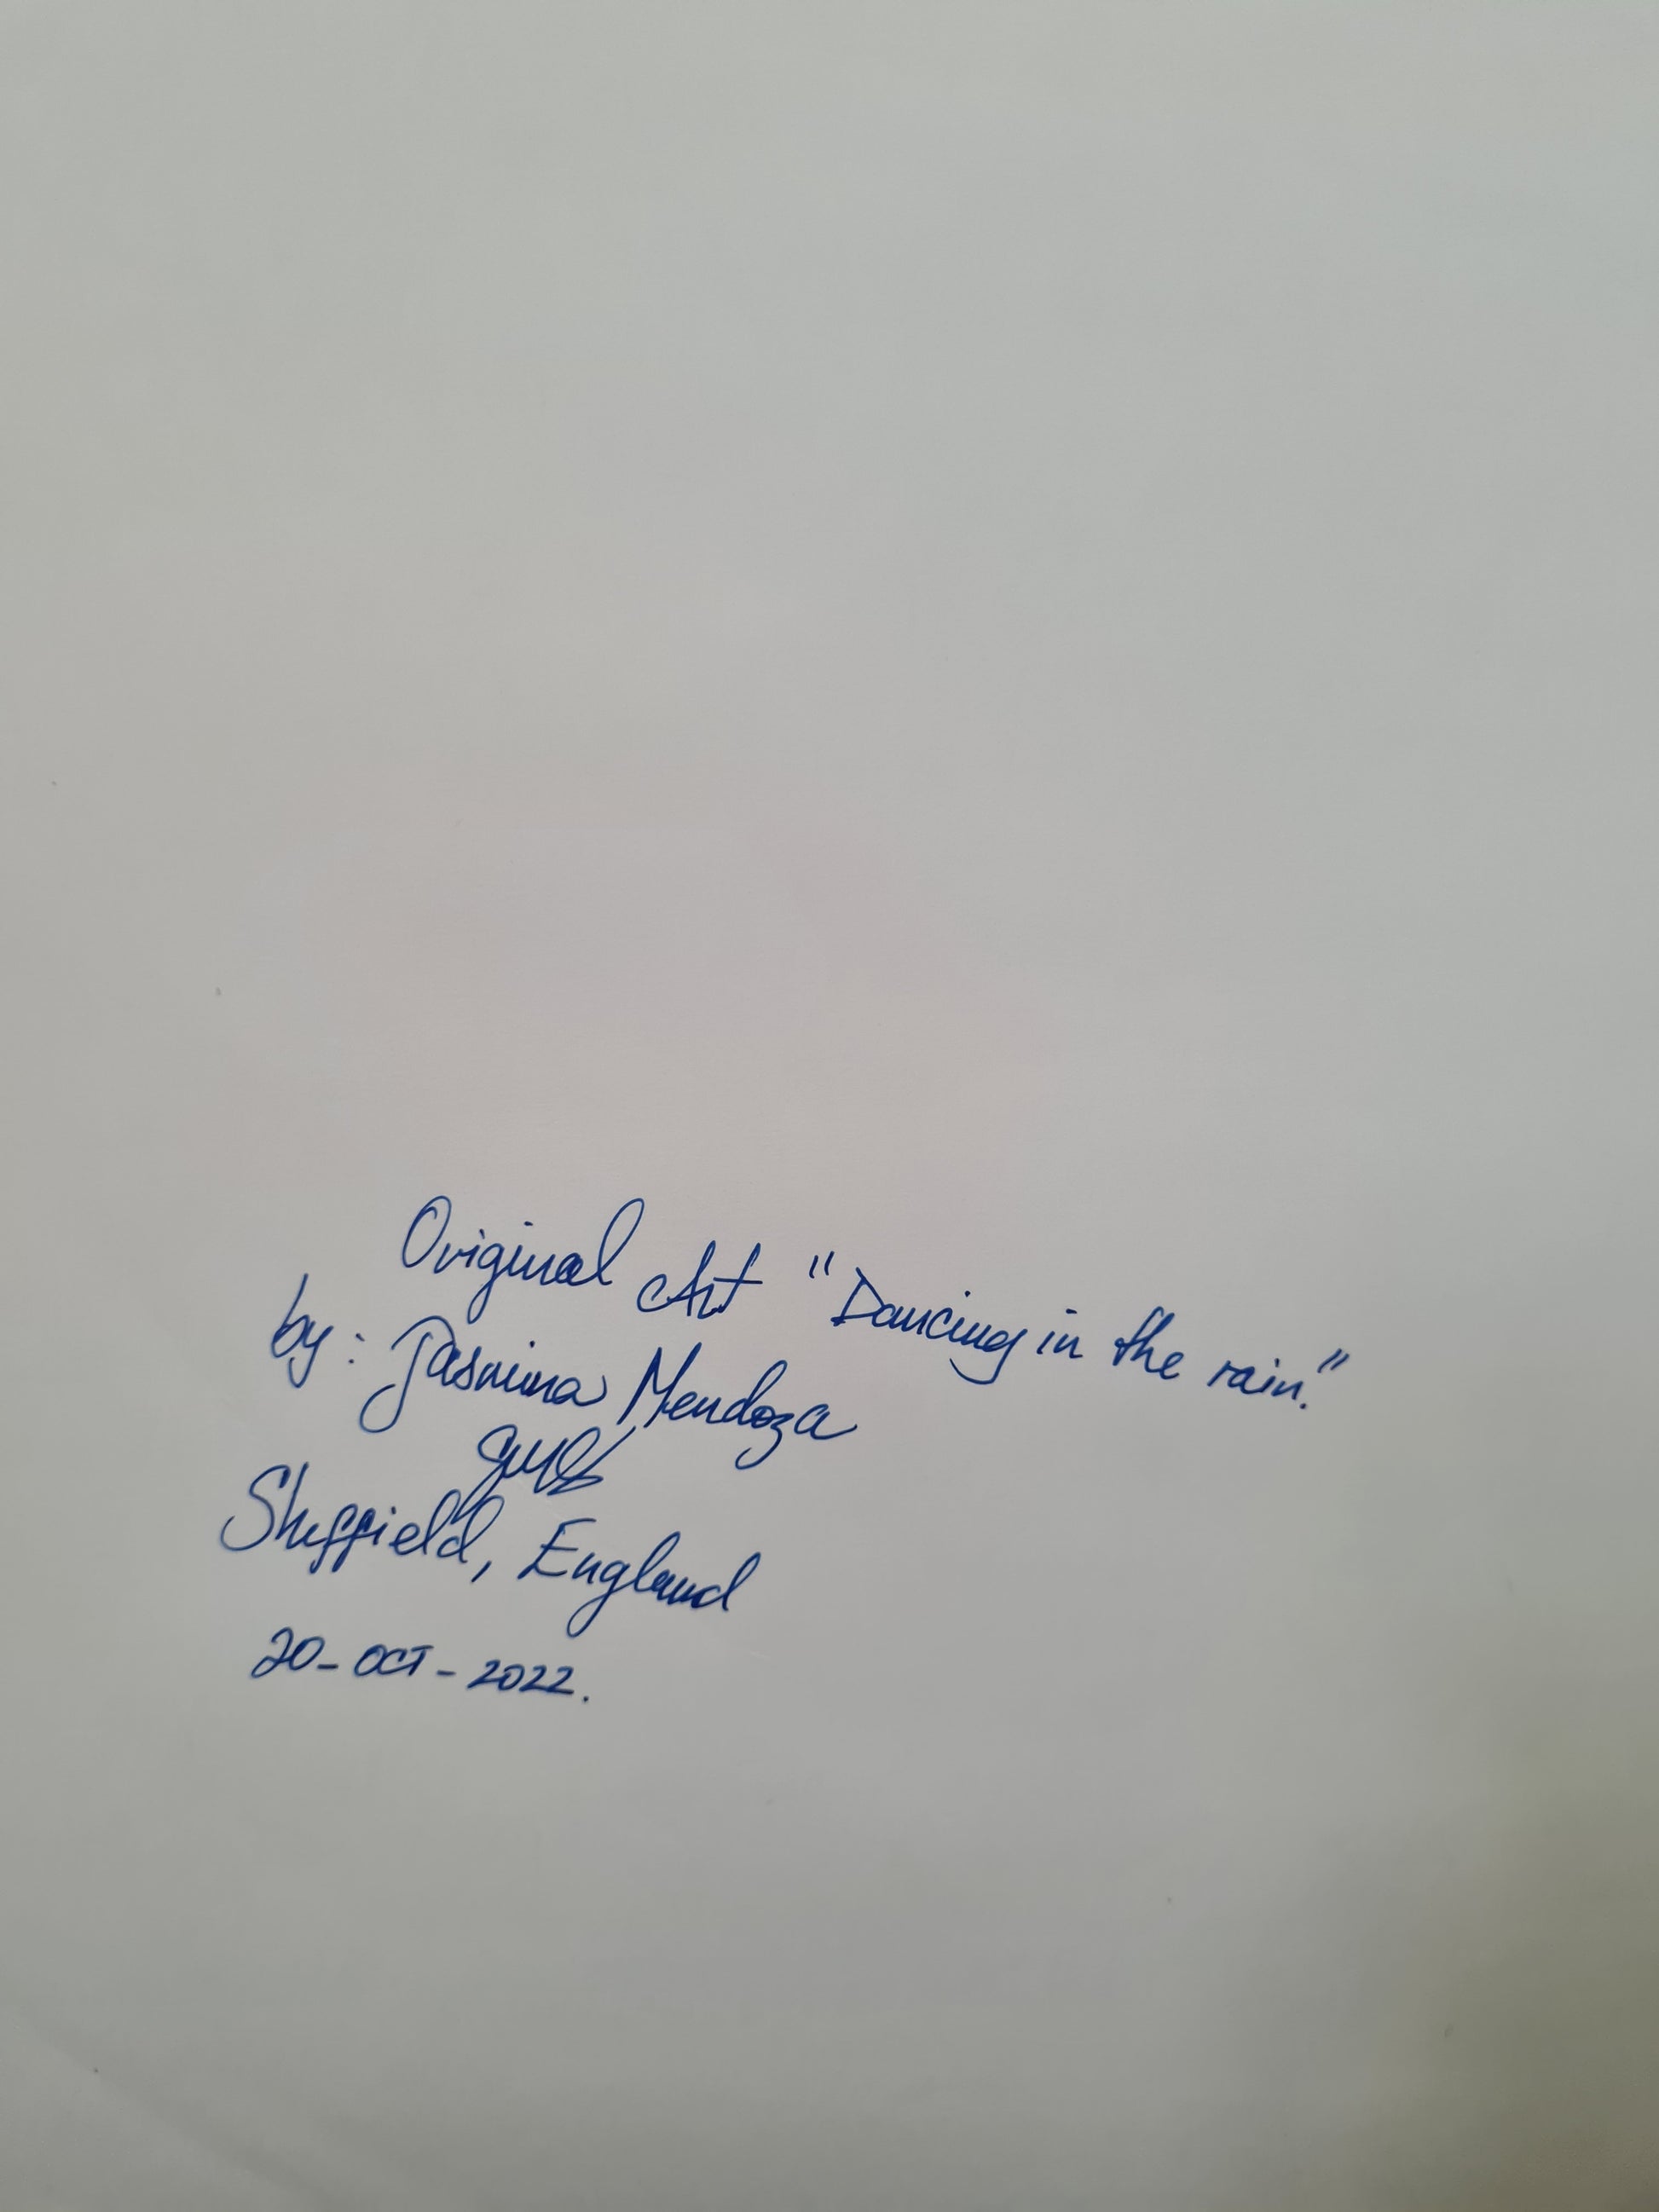 Original Art "Dancing in the rain."
by: Jasmina Mendoza
Sheffield, England
20-OCT-2022.